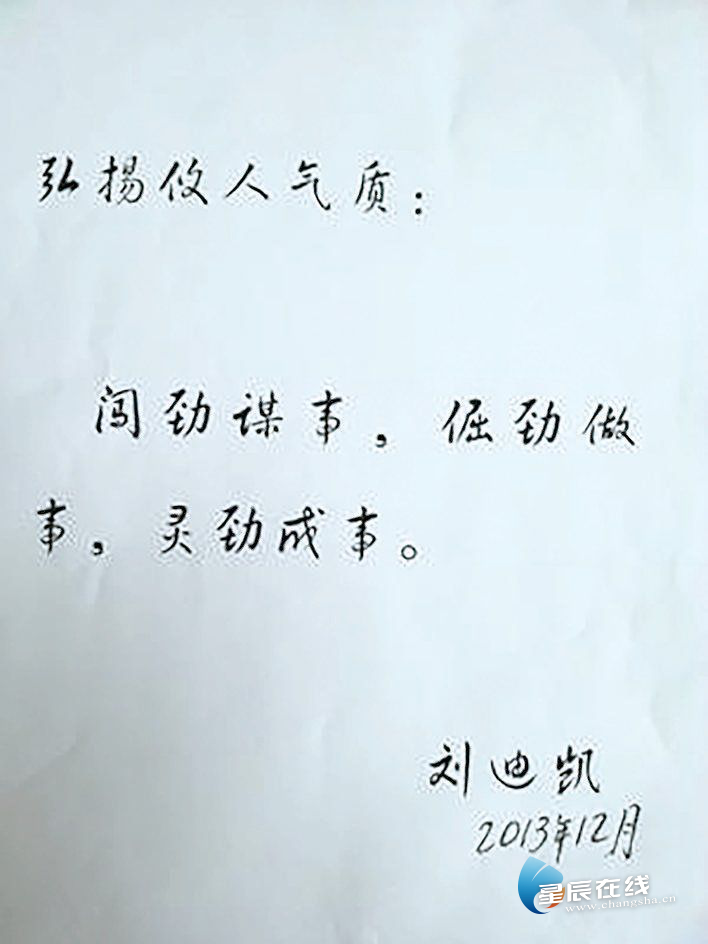 弘扬攸人气质:
闯劲谋事,倔劲做
事,灵劲成事。
刘迪凯
2013年12月
星辰在线
www.changsha.cn